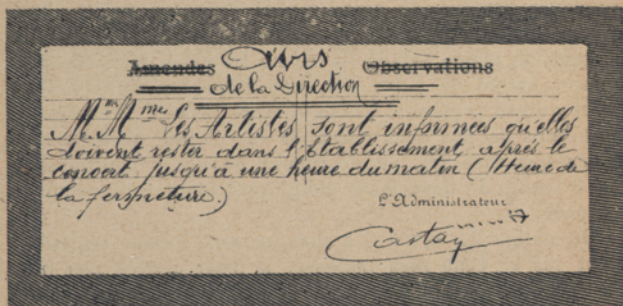 Amendes Avis Observations
de la Direction
M.M mes Les Artistes sont informées qu'elles
doivent rester dans l'Etablissement, après le
concert jusqu'à une heure du matin (Heure de
la fermeture.)
L'Administrateur
Castay